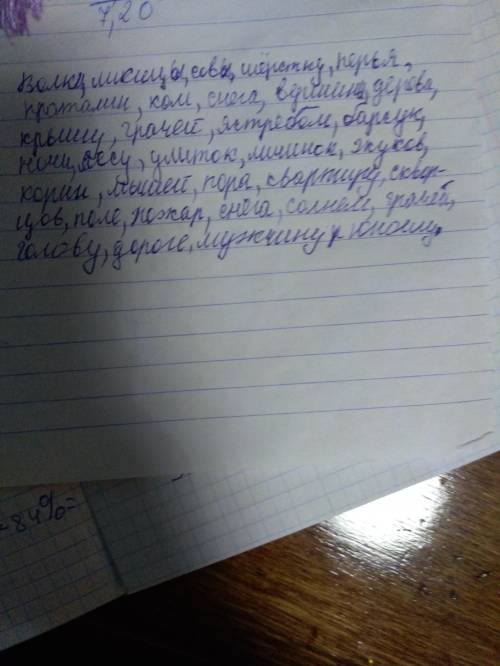 7,20
Волки, лисицы, совы, шёрстку, перья,
проталин, ком, снега, вершина, дерева,
крышу, грачей, ястребом, барсук,
ночи, лесу, улиток, личинок, жуков,
корни, мышей, пора, квартиру, сквор-
цов, поле, пожар, снега, солнцем, грачей,
голову, дороге, мужчину, юношу.
84%=